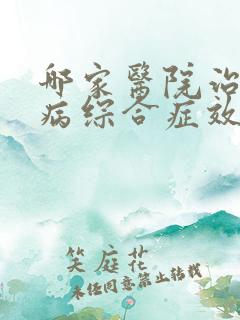 哪家醫院治
病綜合症效
笑庭花
未经同意禁止转载